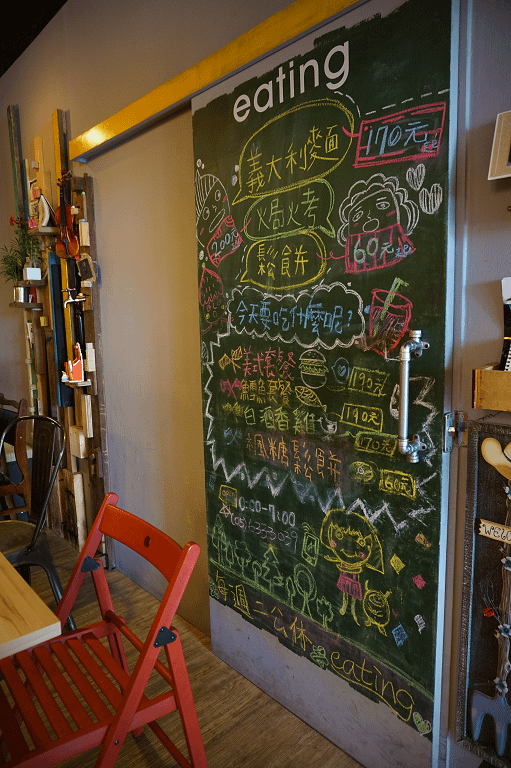 eating
義大利麵
170元起
焗烤
200元起
60元起
鬆餅
今天要吃什麼呢?
美式套餐
190元
鱈魚套餐
190元
白酒香雞
170元
楓糖鬆餅
160元
10:00-7:00
每週二公休
eating